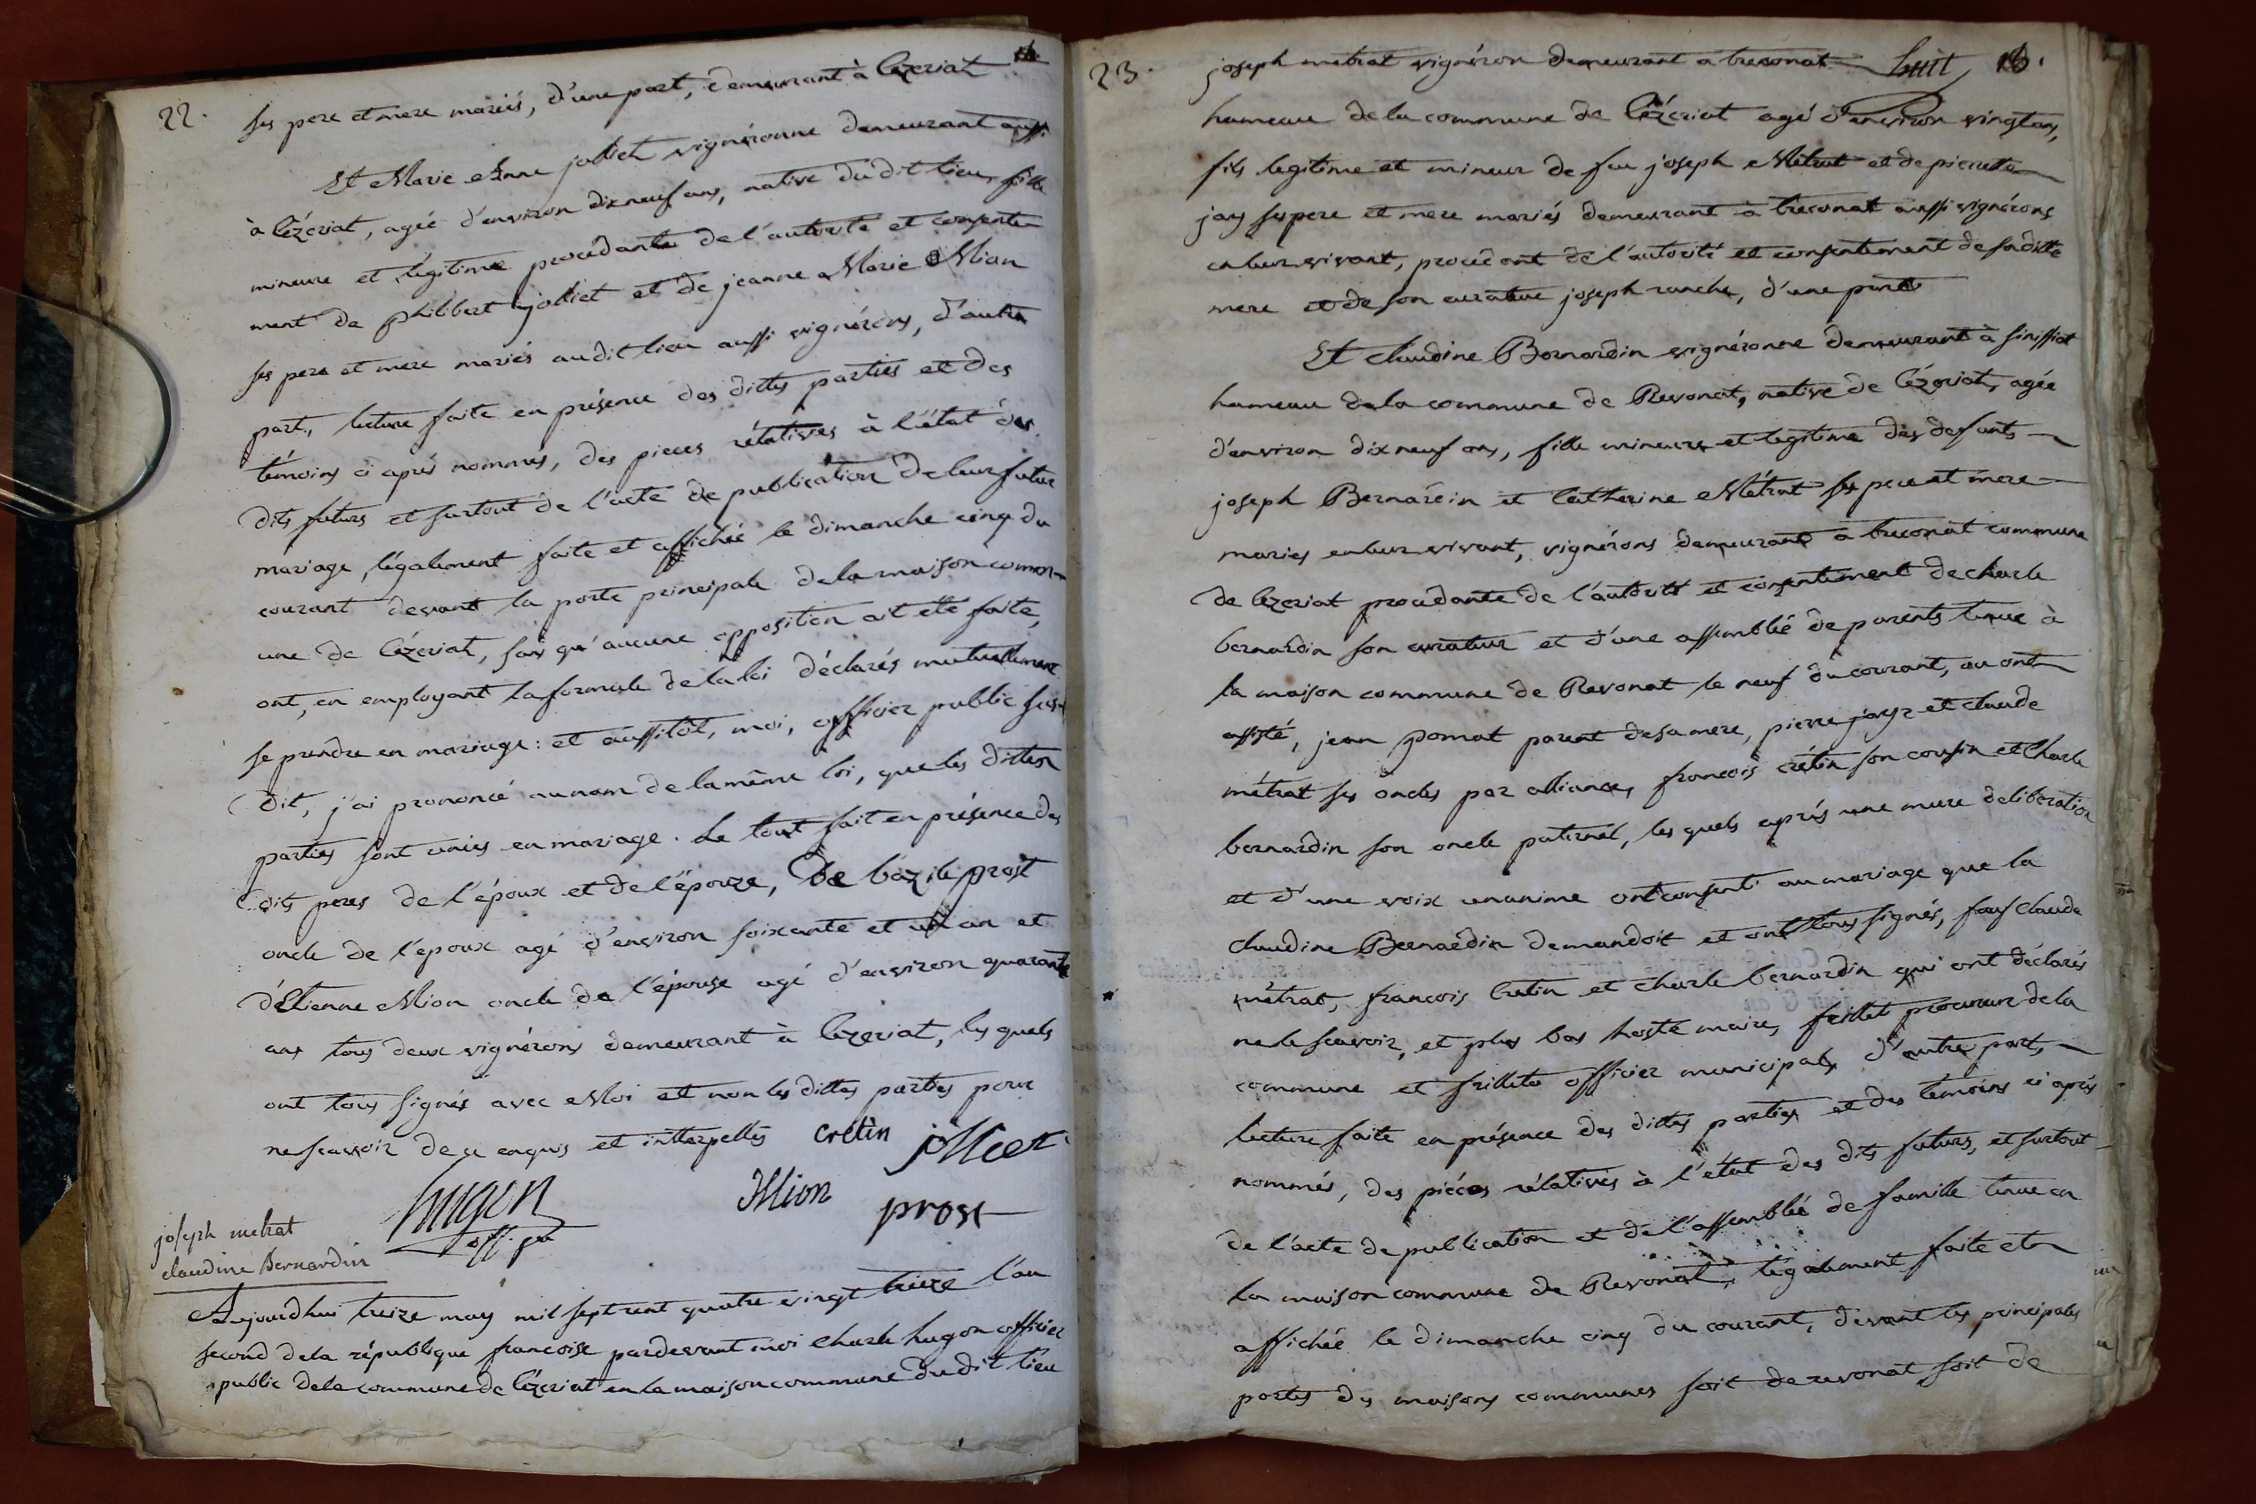 22.
ses pere et mere mariés, d'une part, demeurant à Cezeriat
Et Marie Anne jolliet vignéronne demeurant aussi
à Cézériat, agée d'environ dix neuf ans, native du dit lieu, fille
mineure et légitime procédante de l'autorité et consente-
ment de philibert jolliet et de jeanne Marie Mion
ses pere et mere mariés au dit lieu aussi vignérons, d'autre
part, lecture faite en présence des dittes parties et des
témoins ci après nommés, des pieces rélatives à l'état des
dits futurs et surtout de l'acte de publication de leur futur
mariage, légalement faite et affichée le dimanche cinq du
courant devant la porte principale de la maison comm-
une de Cézériat, sans qu'aucune opposition ait été faite,
ont, en employant la formule de la loi déclarés mutuellement
se prendre en mariage: et aussitôt, moi, officier public sus-
dit, j'ai prononcé au nom de la même loi, que les dittes
parties sont unies en mariage. Le tout fait en présence des
dits peres de l'époux et de l'épouze, De bazile prost
oncle de l'époux agé d'environ soixante et un an et
d'Etienne Mion oncle de l'épouse agé d'environ quarante
ans tous deux vignérons demeurant à Cezeriat, les quels
ont tous signés avec Moi et non les dittes parties pour
ne scavoir de ce enquis et interpellés cretin jolliet
Mion prost
hugon
off. pu
joseph metrat
claudine Bernardin
Aujourdhui treize may mil sept cent quatre vingt treize l'an
second de la république françoise pardevant moi Charle hugon officier
public de la commune de Cézériat en la maison commune du dit lieu
23.
joseph metrat vignéron demeurant a tresonat huit
hameau de la commune de Cézériat agé d'environ vingt ans,
fils legitime et mineur de feu joseph Métrat et de pierrette
jay ses pere et mere mariés demeurant à tresonat aussi vignérons
en leur vivant, procédant de l'autorité et consentement de sa ditte
mere et de son curateur joseph ranche, d'une part
Et claudine Bernardin vignéronne demeurant à sinssiat
hameau de la commune de Revonat, native de Cézériat, agée
d'environ dix neuf ans, fille mineure et legitime des defunts
joseph Bernardin et Catherine Métrat ses pere et mere
mariés en leur vivant, vignérons demeurant a tresonat commune
de Cezeriat procédante de l'autorité et consentement de charle
bernardin son curateur et d'une assemblée de parents tenue à
la maison commune de Revonat le neuf du courant, ou ont
assisté, jean pomat parent de sa mere, pierre jayr et claude
métrat ses oncles par alliance, françois crétin son cousin et Charle
bernardin son oncle paternel, les quels après une mure deliberation
et d'une voix unanime ont consenti au mariage que la
claudine Bernardin demandoit et ont tous signés, sauf Claude
métrat, françois Cretin et charle bernardin qui ont déclarés
ne le scavoir, et plus bas hoste maire, frillet procureur de la
commune et frillet officier municipal, d'autre part,
lecture faite en présence des dittes parties et des temoins ci après
nommés, des pièces rélatives à l'état des dits futurs, et surtout
de l'acte de publication et de l'assemblée de famille tenue en
la maison commune de Revonat, légalement faite et
affichée le dimanche cinq du courant, devant les principales
portes des maisons communes soit de revonat soit de